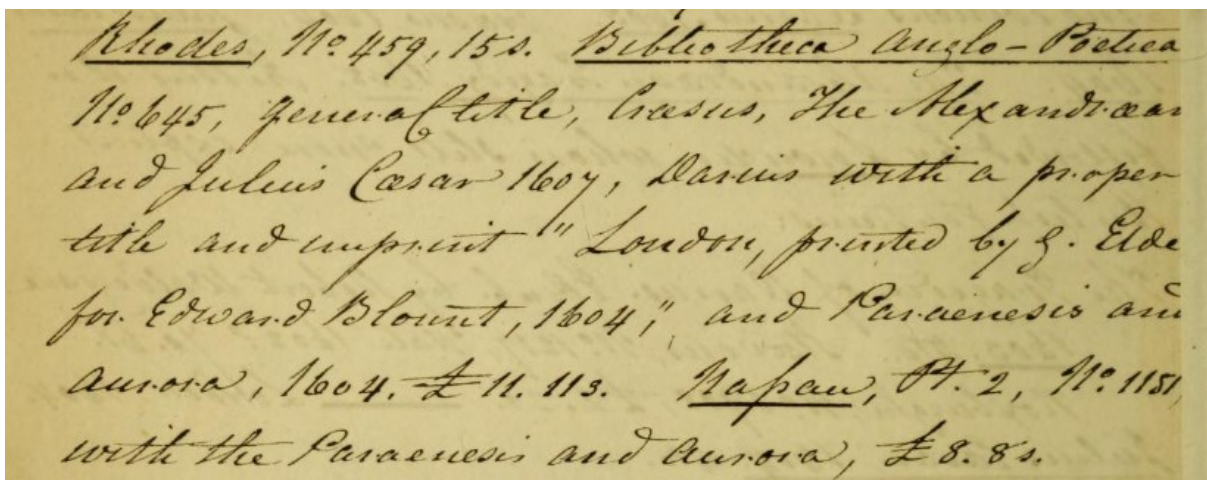 Rhodes, No 459, 15s. Bibliotheca Anglo-Poetica
No 645, general title, Crœsus, The Alexandræan
and Julius Cæsar 1607, Darius with a proper
title and imprint "London, printed by G. Elde
for Edward Blount, 1604", and Paraenesis and
Aurora, 1604. £11. 11s. Nassau, Pt. 2, No. 1151,
with the Paraenesis and Aurora, £8. 8s.